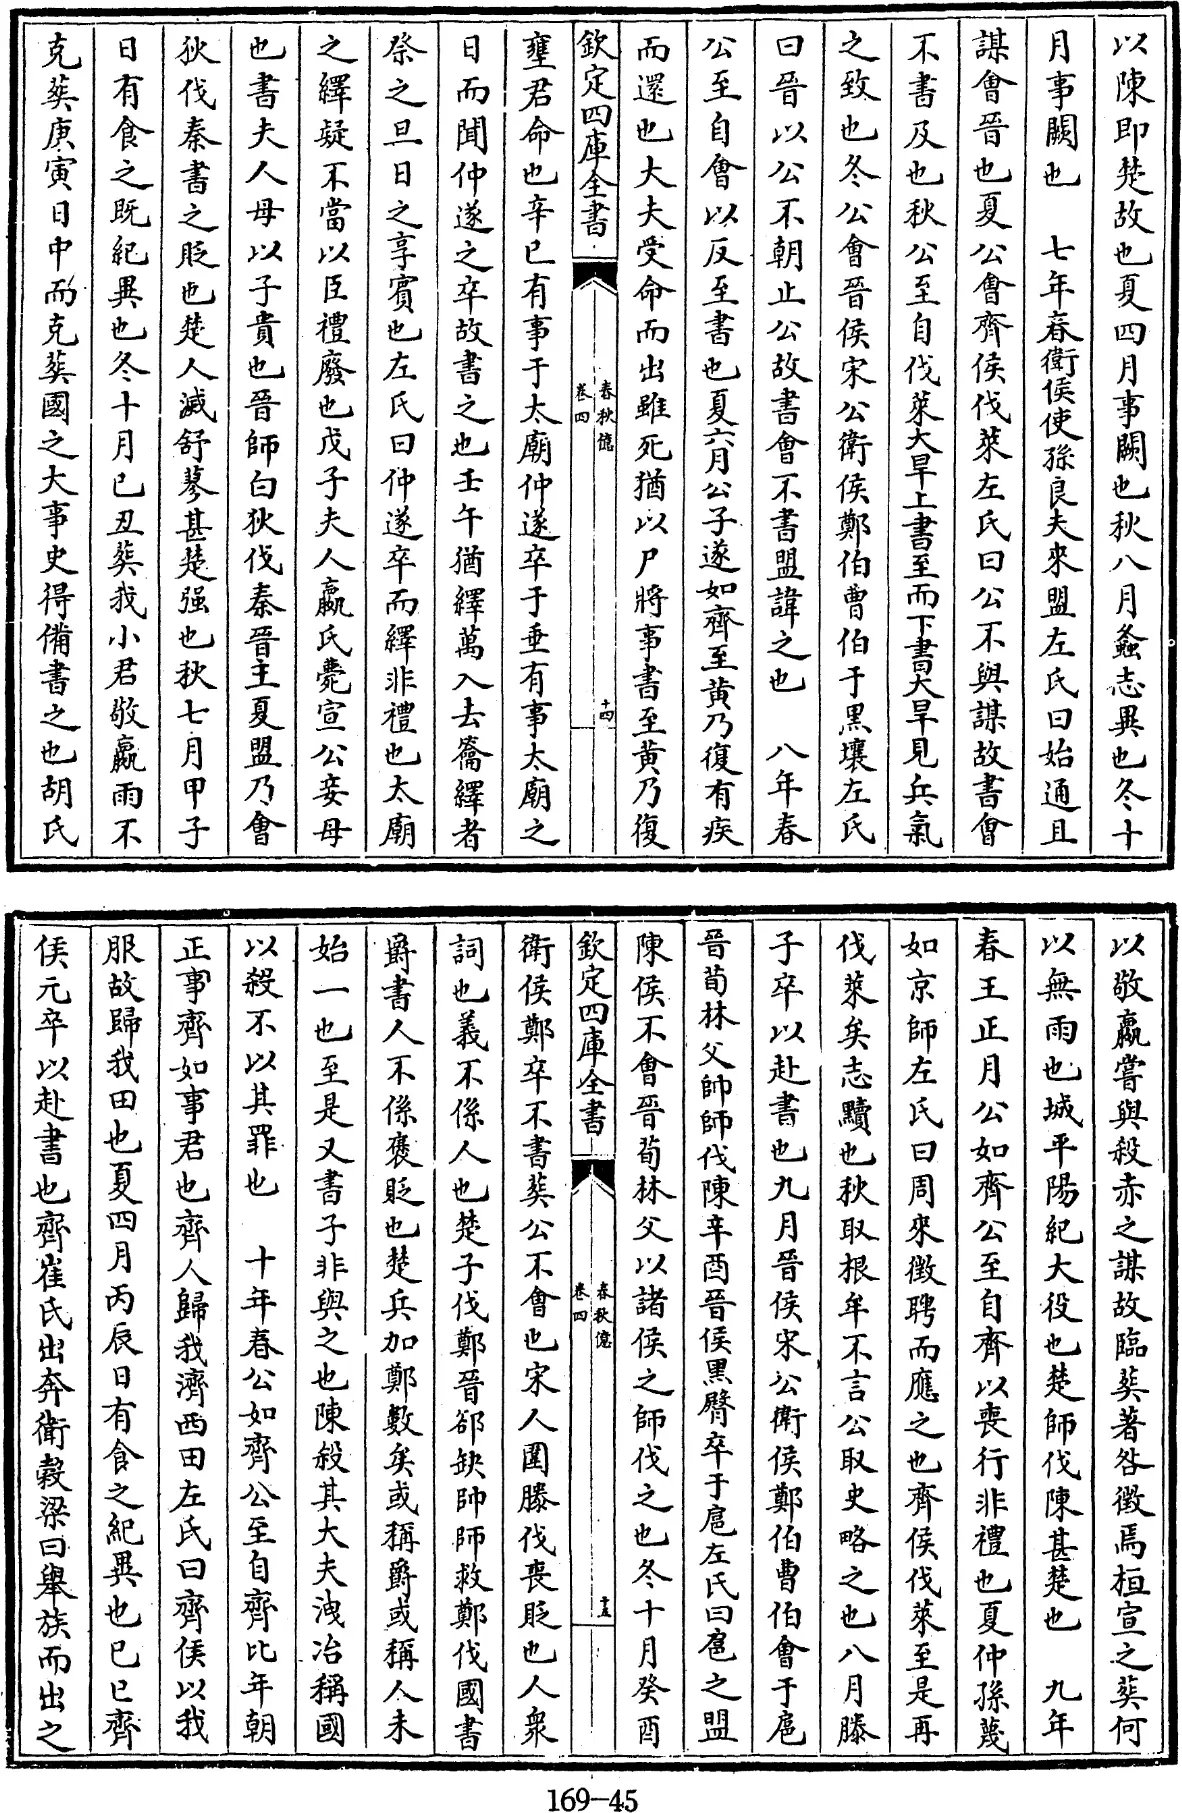 以陳即楚故也夏四月事闕也秋八月螽志異也冬十
月事闕也　七年春衛侯使孫良夫來盟左氏曰始通且
謀會晉也夏公會齊侯伐萊左氏曰公不與謀故書會
不書及也秋公至自伐萊大旱上書至而下書大旱見兵氣
之致也冬公會晉侯宋公衛侯鄭伯曹伯于黒壤左氏
曰晉以公不朝止公故書會不書盟諱之也　八年春
公至自會以反至書也夏六月公子遂如齊至黄乃復有疾
而還也大夫受命而出雖死猶以尸將事書至黄乃復
欽定四庫全書
春秋億
卷四
十四
壅君命也辛巳有事于太廟仲遂卒于垂有事太廟之
日而聞仲遂之卒故書之也壬午猶繹萬入去籥繹者
祭之旦日之享賓也左氏曰仲遂卒而繹非禮也太廟
之繹疑不當以臣禮廢也戊子夫人嬴氏薨宣公妾母
也書夫人母以子貴也晉師白狄伐秦晉主夏盟乃會
狄伐秦書之貶也楚人滅舒蓼甚楚强也秋七月甲子
日有食之既紀異也冬十月己丑葬我小君敬嬴雨不
克葬庚寅日中而克葬國之大事史得備書之也胡氏
以敬嬴嘗與殺赤之謀故臨葬著咎徵焉桓宣之葬何
以無雨也城平陽紀大役也楚師伐陳甚楚也　九年
春王正月公如齊公至自齊以喪行非禮也夏仲孫蔑
如京師左氏曰周來徵聘而應之也齊侯伐萊至是再
伐萊矣志黷也秋取根牟不言公取史略之也八月滕
子卒以赴書也九月晉侯宋公衛侯鄭伯曹伯會于扈
晉荀林父帥師伐陳辛酉晉侯黒臀卒于扈左氏曰扈之盟
陳侯不會晉荀林父以諸侯之師伐之也冬十月癸酉
欽定四庫全書
春秋億
卷四
十五
衛侯鄭卒不書葬公不會也宋人圍滕伐喪貶也人衆
詞也義不係人也楚子伐鄭晉郤缺帥師救鄭伐國書
爵書人不係褒貶也楚兵加鄭數矣或稱爵或稱人未
始一也至是又書子非與之也陳殺其大夫洩冶稱國
以殺不以其罪也　十年春公如齊公至自齊比年朝
正事齊如事君也齊人歸我濟西田左氏曰齊侯以我
服故歸我田也夏四月丙辰日有食之紀異也己巳齊
侯元卒以赴書也齊崔氏出奔衛榖梁曰舉族而出之
169-45